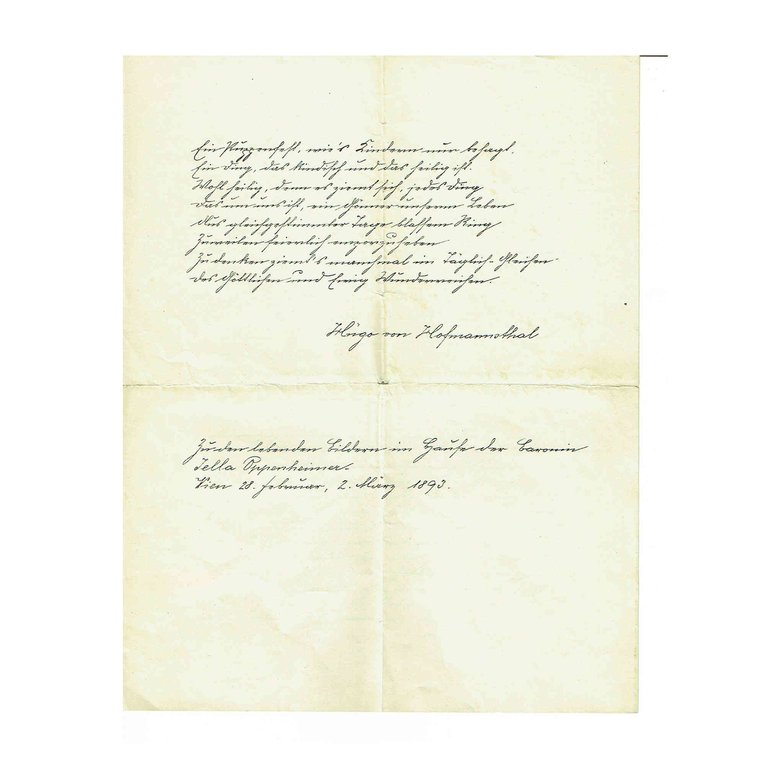 Ein Puppenfest, wie's Kindern nur behagt.
Ein Ding, das kindisch und das heilig ist.
Wohl heilig, denn es ziemt sich, jedes Ding
Das um uns ist, ein Gönner unserm Leben
Aus gleichgestimmter Tage blassem Ring
Zuweilen feierlich emporzuheben
Zu denken ziemt's manchmal im Täglich-Gleichen
Des Göttlichen und Ewig Wunderreichen.
Hugo von Hofmannsthal
Zu den lebenden Bildern im Hause der Baronin
Jella Oppenheimer.
Wien 28. Februar, 2. März 1893.